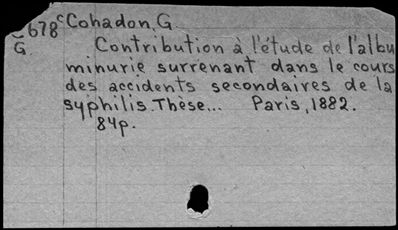 678 c Cohadon, G.
G. Contribution à l'étude de l'albu
minurie surrenant dans le cours
des accidents secondaires de la
syphilis. Thèse... Paris, 1882.
84p.